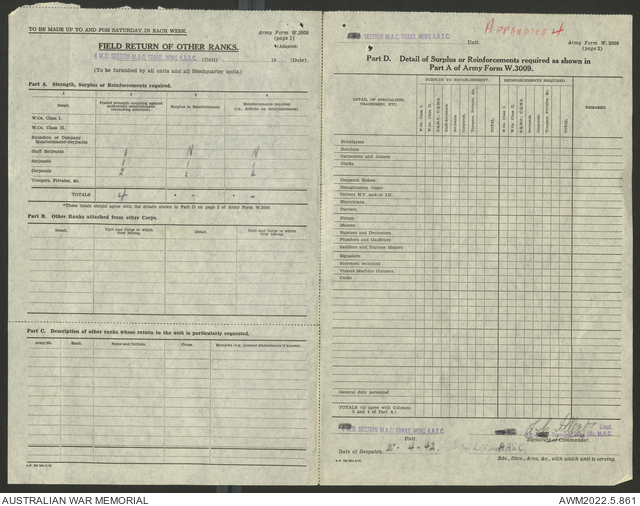 TO BE MADE UP TO AND FOR SATURDAY IN EACH WEEK.
Army Form W.3009
(page 1)
(Adapted)
FIELD RETURN OF OTHER RANKS.
4 M.D. SECTION M.A.C. TRANS. WING A.A.S.C. (Unit) 19 (Date)
(To be furnished by all units and all Headquarter units.)
Part A. Strength, Surplus or Reinforcements required.
1 2 3 4
Detail. Posted strength counting against authorised establishment (including attached). Surplus to Establishment. Reinforcements required (i.e., deficits on establishment).
W.Os. Class I.
W.Os. Class II.
Squadron or Company Quartermaster-Serjeants
Staff Serjeants 1 N N
Serjeants 1
Corporals 2
Troopers, Privates, &c.
TOTALS 4 - -
*These totals should agree with the details shown in Part D on page 2 of Army Form W.3009
Part B. Other Ranks attached from other Corps.
Detail. Unit and Corps to which they belong. Detail. Unit and Corps to which they belong.
Part C. Description of other ranks whose return to the unit is particularly requested.
Army No. Rank. Name and Initials. Corps. Remarks (e.g., present whereabouts if known).
SECTION M.A.C. TRANS. WING A.A.S.C.
Unit.
APPENDICE 4
Army Form W.3009
(page 2)
Part D. Detail of Surplus or Reinforcements required as shown in
Part A of Army Form W.3009.
SURPLUS TO ESTABLISHMENT. REINFORCEMENTS REQUIRED.
DETAIL OF SPECIALISTS, TRADESMEN, ETC.
W.Os. Class I. W.Os. Class II. S.Q.M.S., C.Q.M.S. Staff-Serjeants Serjeants Corporals Troopers, Privates, &c. TOTAL.
W.Os. Class I. W.Os. Class II. S.Q.M.S., C.Q.M.S. Serjeants Corporals Troopers, Privates, &c. TOTAL. REMARKS.
Bricklayers
Butchers
Carpenters and Joiners
Clerks
Despatch Riders
Draughtsmen (topo)
Drivers H.T. and/or I.C.
Electricians
Farriers
Fitters
Masons
Painters and Decorators
Plumbers and Gasfitters
Saddlers and Harness Makers
Signallers
Storemen technical
Vickers Machine Gunners
Cooks
General duty personnel
TOTALS (to agree with Columns 3 and 4 of Part A.)
M.D. SECTION M.A.C. TRANS. WING A.A.S.C.
Unit.
Lieut.
M.A.C.
Signature of Commander.
Date of Despatch. 5-4-42 AASC
Bde., Divn., Area, &c., with which unit is serving.
AUSTRALIAN WAR MEMORIAL AWM2022.5.861